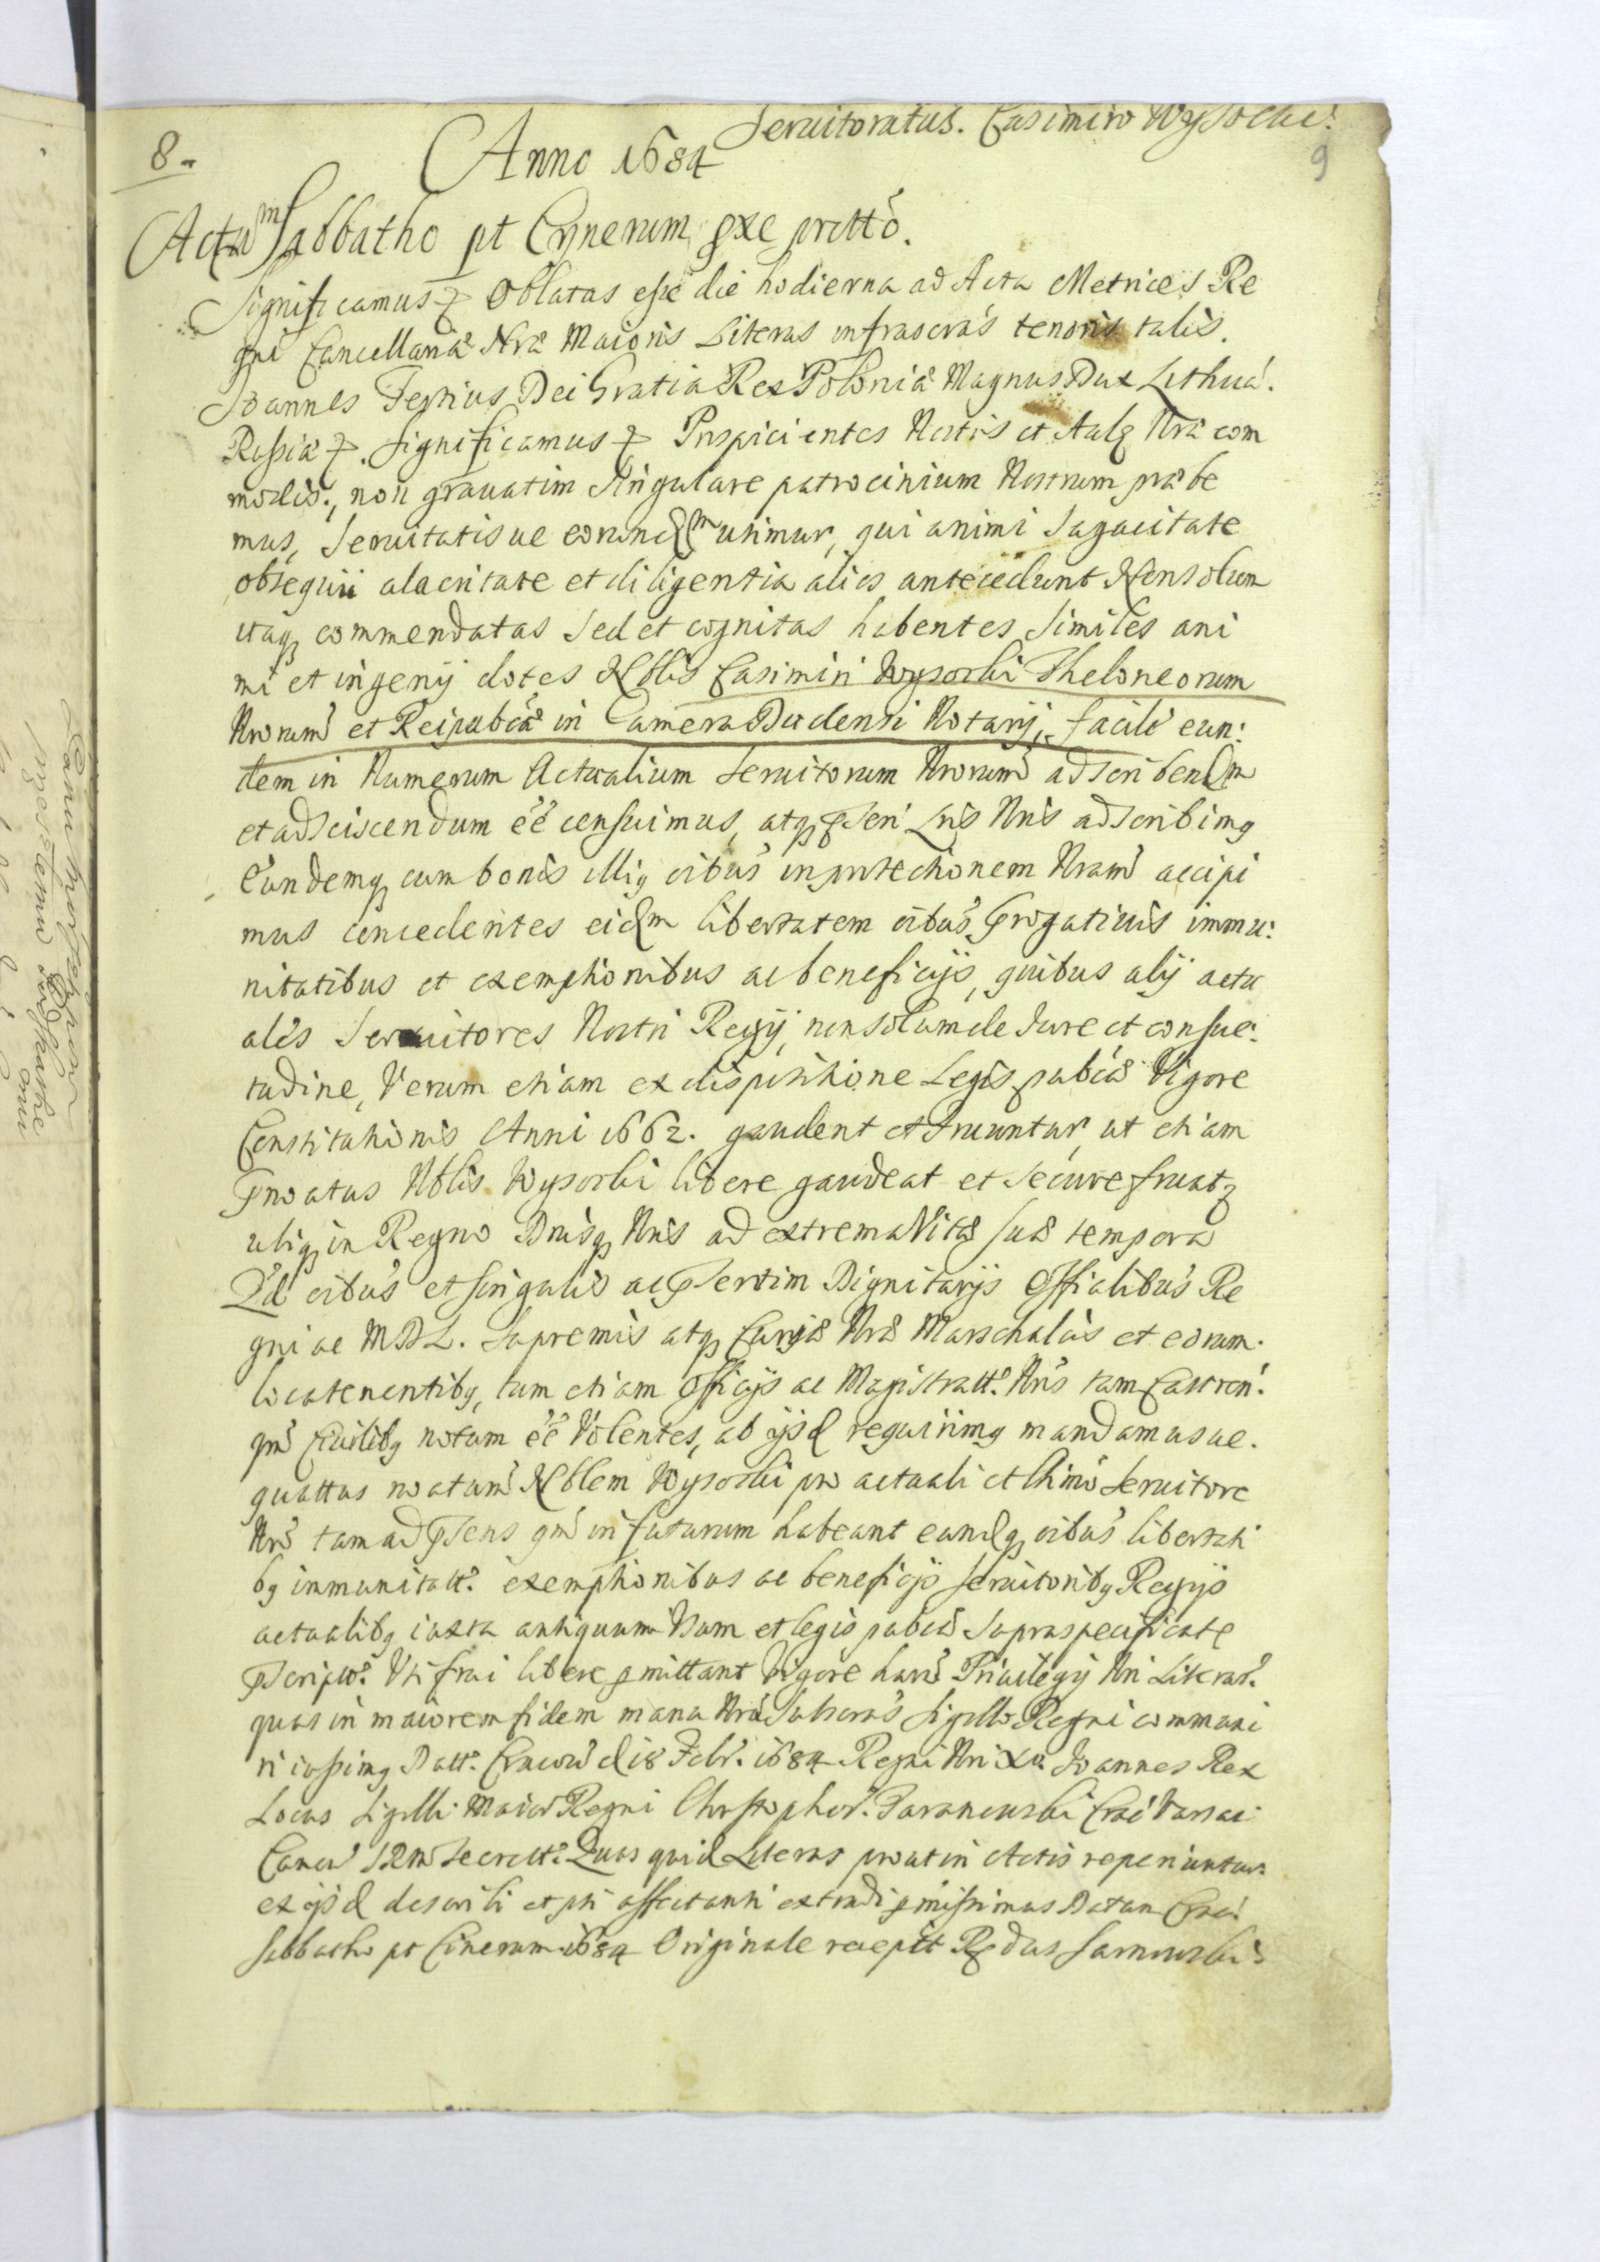 Seruitoratus. Casimiro Wysocki.
8.
9
Anno 1684
Actum Sabbatho pt Cynerum pxe pritto.
Significamus & Oblatas esse die hodierna ad Acta Metrices Re
gni Cancellariæ Nræ Maioris Literas infrascras tenoris talis.
Joannes Tertius Dei Gratia Rex Poloniæ Magnus Dux Lithua.
Russiæ &. Significamus & Prospicientes Nostris et Aulæ Nræ com
modis., non grauatim singulare patrocinium Nostrum præbe
mus, seruitatisue eorundem utimur, qui animi sagacitate
obsequii alacritate et diligentia alios antecedunt Non solum
itaq commendatas sed et cognitas habentes similes ani
mi et ingenij dotes Nblis Casimiri Wysocki Theloneorum
Nrorum et Reipublcæ in Camera Dudensi Notarij, facile eun:
dem in Numerum Actualium Seruitorum Nrorum adscribendm
et adsciscendum eē censuimus, atq pseri Lris Nris adscribimq
Eundemq cum bonis illiq oibus in protectionem Nram accipi
mus concedentes eidm libertatem oibus progatiuis immu:
nitatibus et exemptionibus ac beneficijs, quibus alij actu
ales Seruitores Nostri Regij, non solum de Jure et consue:
tudine, Verum etiam ex dispositione Legis publcæ Vigore
Constitutionis Anni 1662. gaudent et fruuntur, ut etiam
pnoatus Nblis Wysocki libere gaudeat et secure fruatq
ubiq in Regno Dnisq Nris ad extrema Vitæ suæ tempora
Qd oibus et singulis ac psertim Dignitarijs Offialibus Re
gni ac MDL. supremis atq Curiæ Nræ Marschalcis et eorum.
locatenentibq, tum etiam Officijs ac Magistratt. Nris tam Castren.
qm Ciuilibq notum eē Volentes, ab ijsd requirimq mandamusue.
quattus noatum Nblem Wysocki pro actuali et lhimo Seruitore
Nro tam ad psens qm in futurum habeant eundq oibus libertati
bq immunitatt. exemptionibus ac beneficijs Seruitoribq Regijs
actualibq iuxta antiquum Usum et legis publcæ supraspecificate
pscripto. Uti frui libere pmittant Vigore harum Priuilegij Nri Literar.
quas in maiorem fidem manu Nra Subscras Sigillo Regni communi
ri iussimq Datt. Cracou d 18 Febr. 1684 Regni Nri Xo. Joannes Rex
Locus Sigilli Maior Regni Christophor. Taranowski Crac Varsac
Canon SRM Secrett. Quas quid Literas prout in Actis reperiuntur
ex ijsd describi et pti affectanti extradi pmissimus Datum Crac.
Sabbatho pt Cinerum 1684 Originale recepit Rdus Sarnowski.